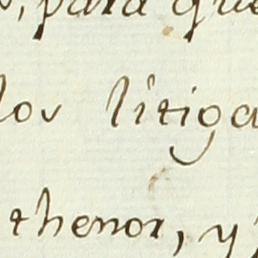 , para que
los litiga
thenor, y